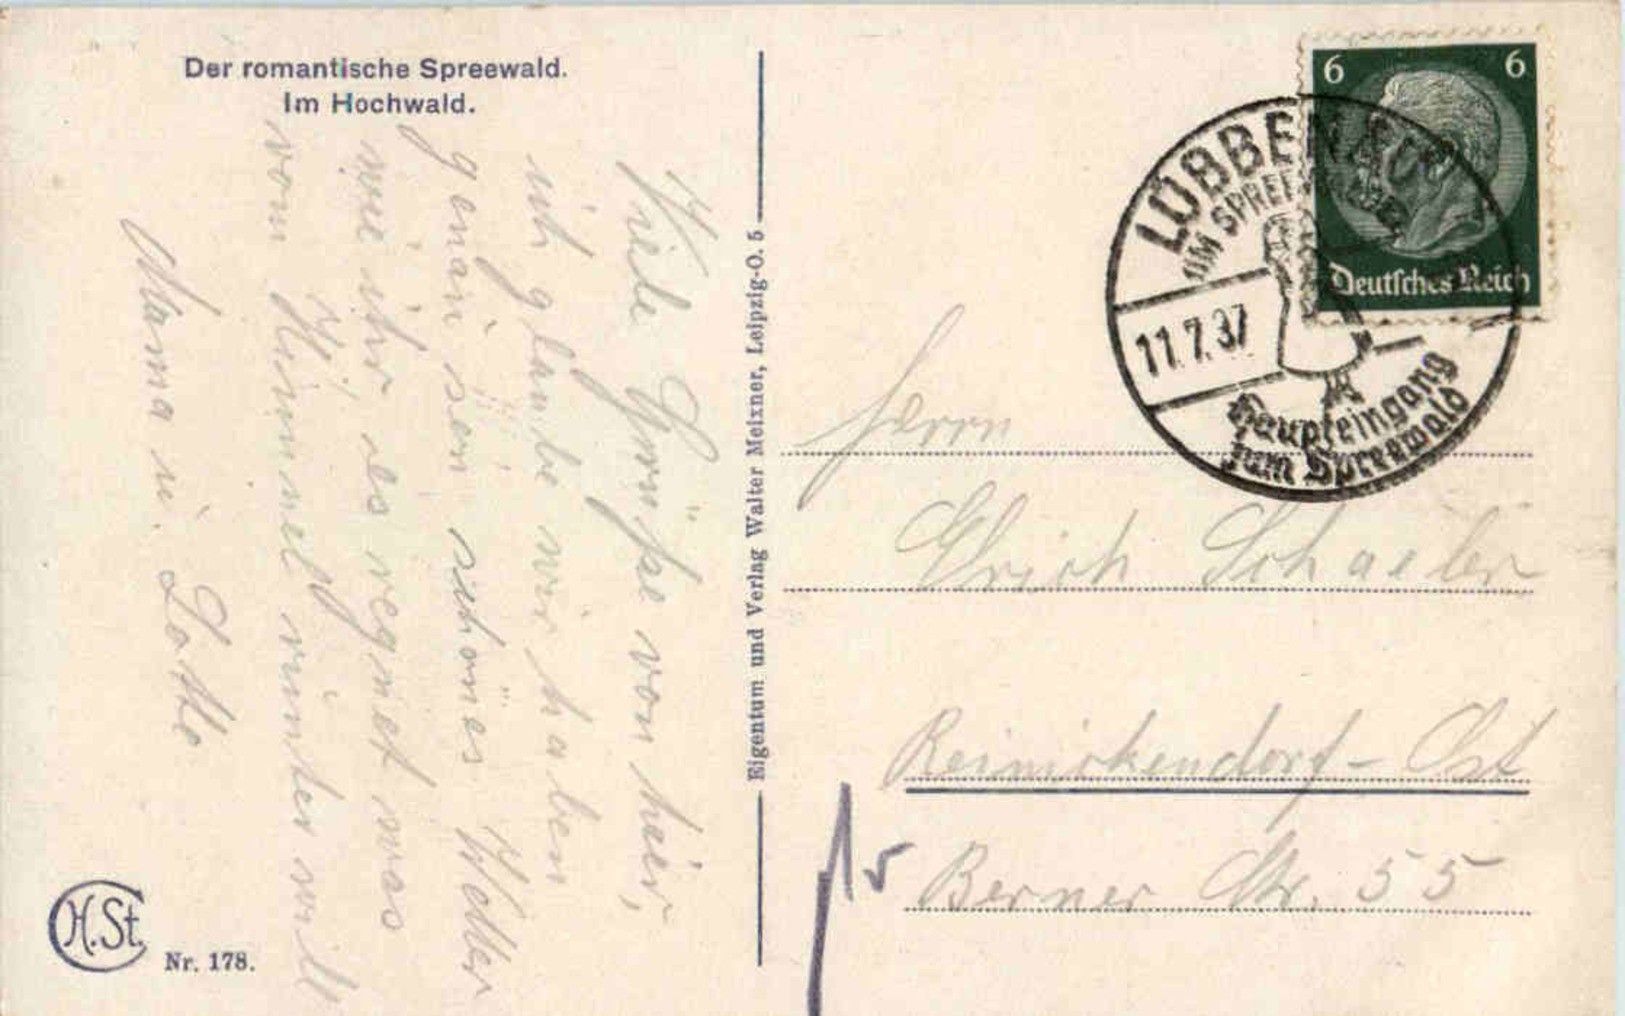 Der romantische Spreewald.
Im Hochwald.
Viele Grüße von hier,
ich glaube wir haben
genau sen schönes Wetter
wie ihr, es regnet was
vom Himmel runter will
Mama u. Lotte
H.St.
Nr. 178.
Eigentum und Verlag Walter Meixner, Leipzig-O. 5
6 6
Deutsches Reich
LÜBBENAU
IM SPREEWALDE
11.7.37
Haupteingang
zum Spreewald
Herrn
Erich
Reinickendorf-Ost
Berner Str. 55